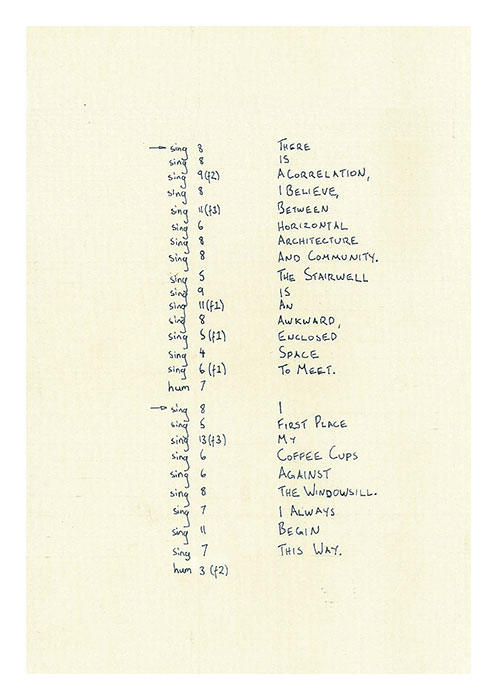 → sing 8 THERE
sing 8 IS
sing 9 (f2) A CORRELATION,
sing 8 I BELIEVE,
sing 11 (f3) BETWEEN
sing 6 HORIZONTAL
sing 8 ARCHITECTURE
sing 8 AND COMMUNITY.
sing 5 THE STAIRWELL
sing 9 IS
sing 11 (f1) AN
sing 8 AWKWARD,
sing 5 (f1) ENCLOSED
sing 4 SPACE
sing 6 (f1) TO MEET.
hum 7
→ sing 8 I
sing 5 FIRST PLACE
sing 13 (f3) MY
sing 6 COFFEE CUPS
sing 6 AGAINST
sing 8 THE WINDOWSILL.
sing 7 I ALWAYS
sing 11 BEGIN
sing 7 THIS WAY.
hum 3 (f2)